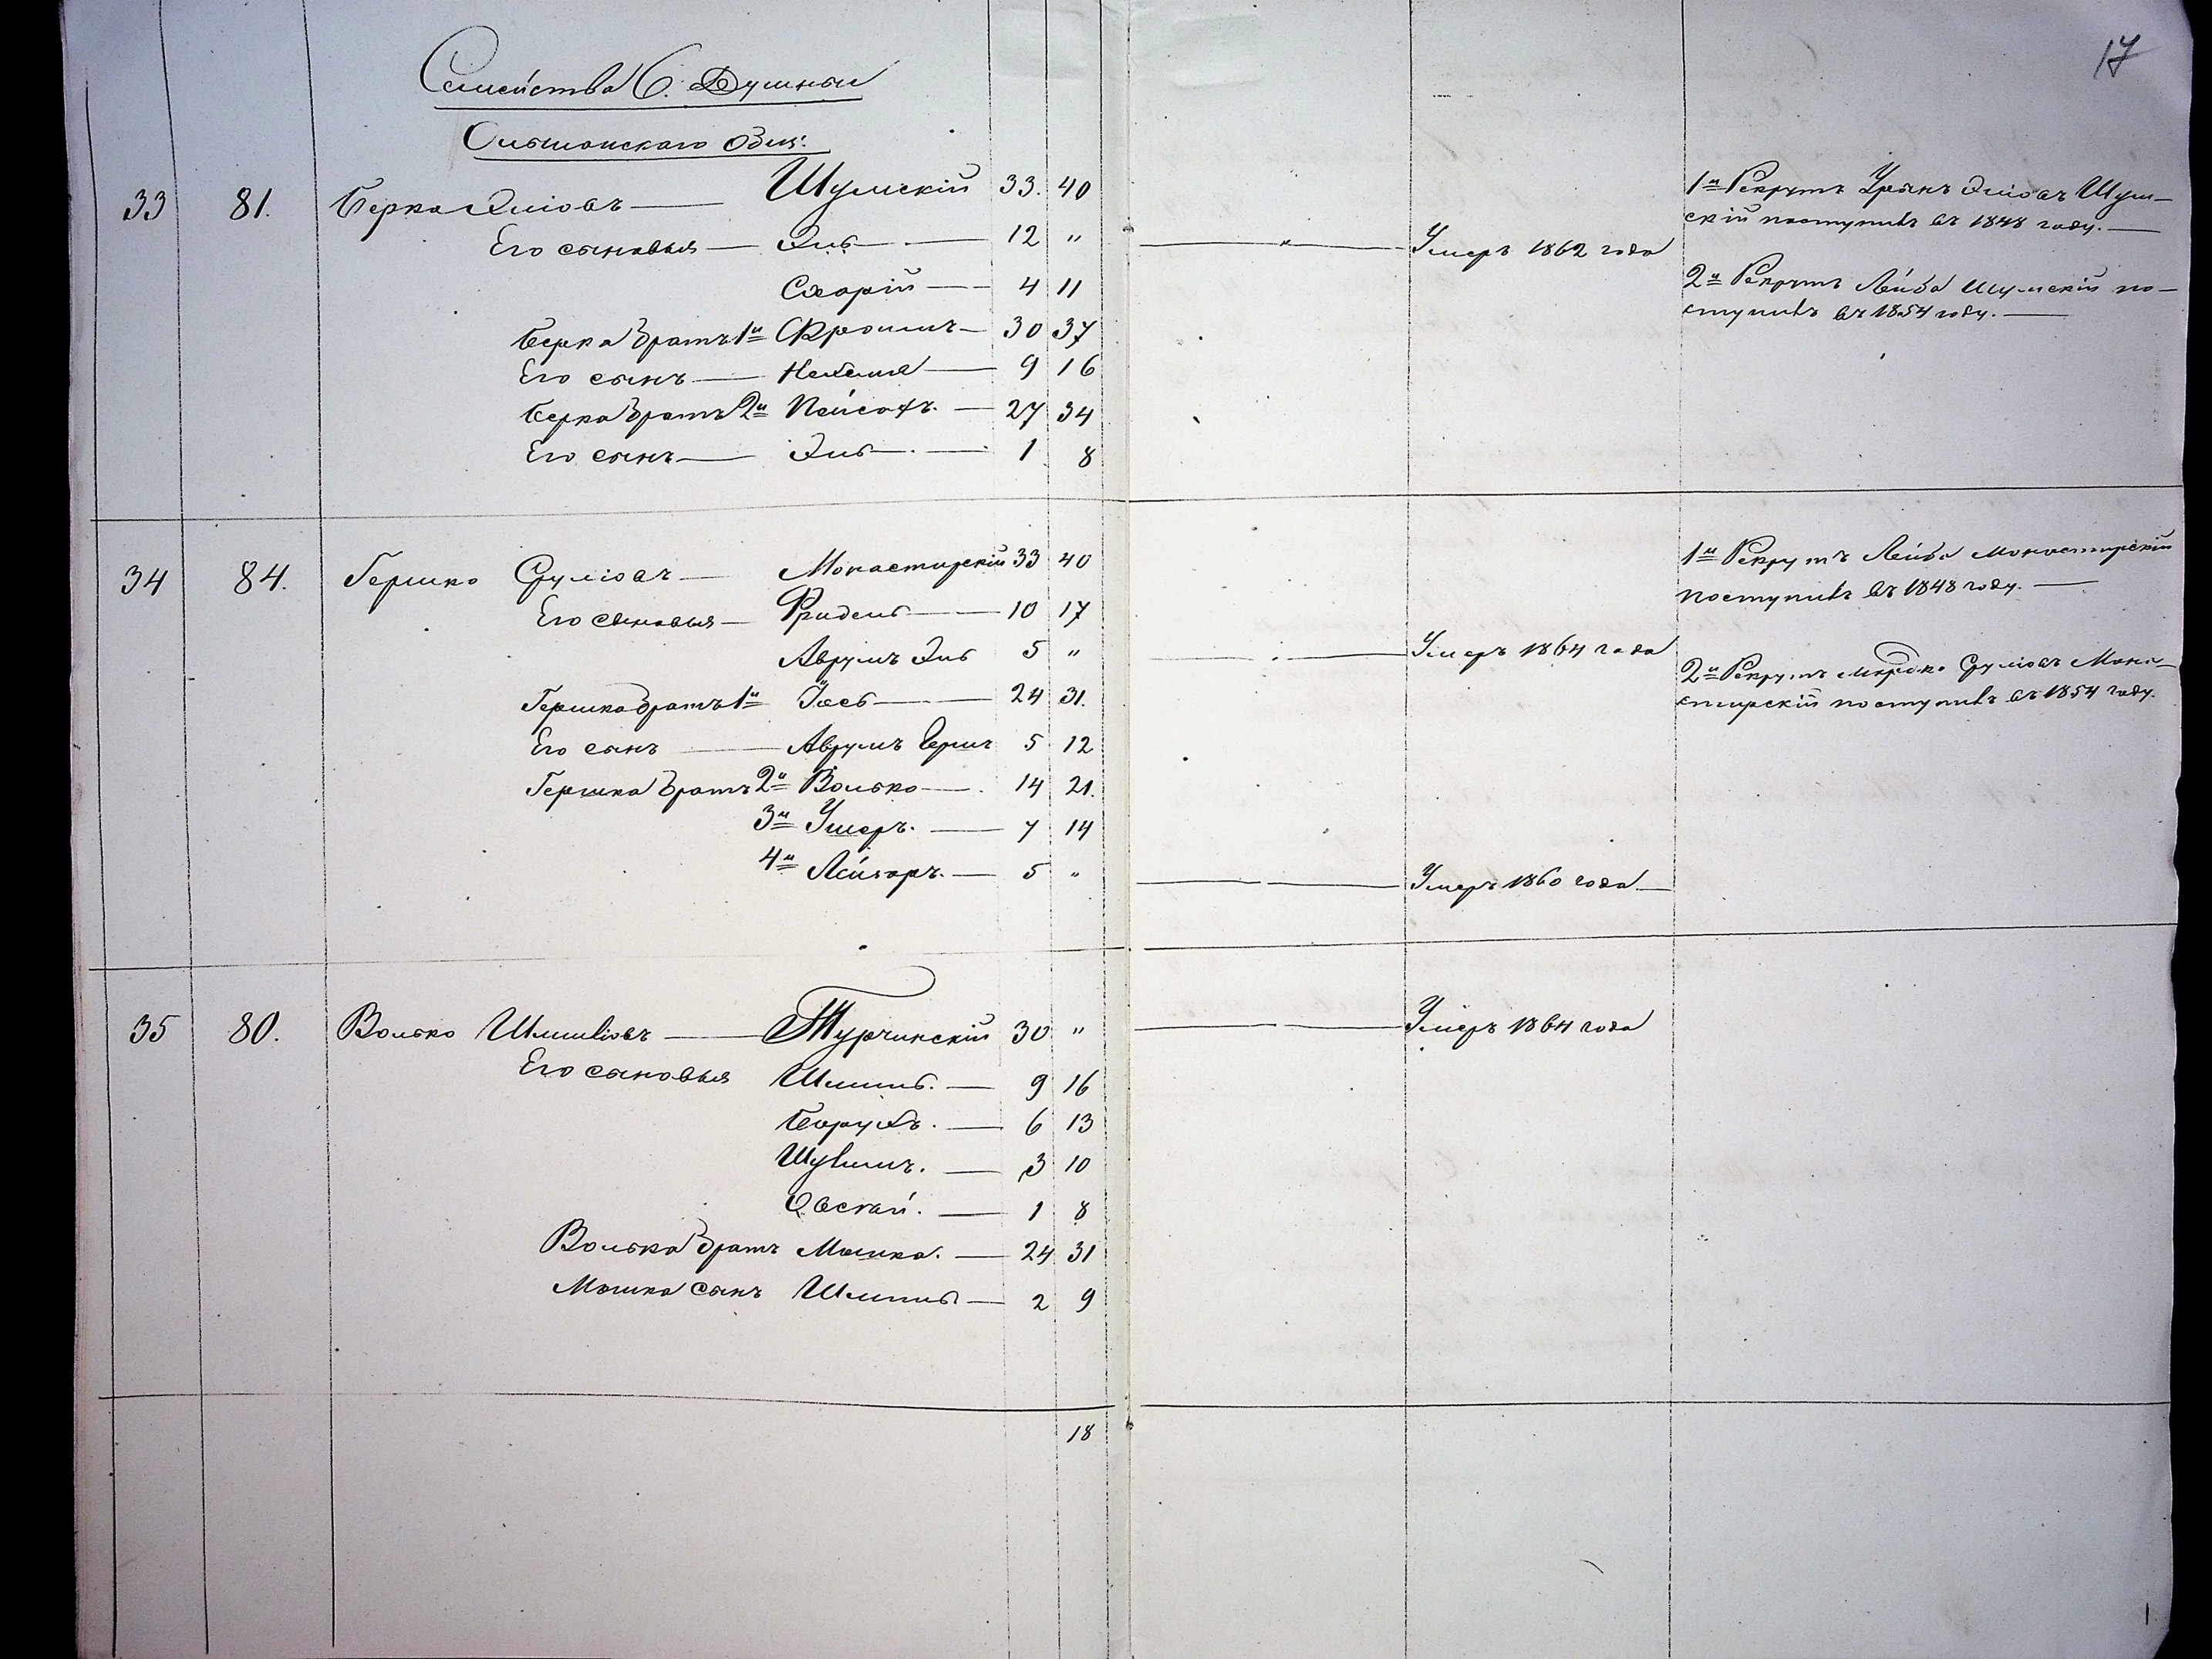 17
Семейства 6. Душныи
Ольшанскаго Общ:
33 81. Берко Эліовъ — Шумскій 33. 40
1й Рекрутъ Эліовъ Шум-
скій поступилъ въ 1848 году. —
Его сыновья — Эль — 12 „ — „ — Умеръ 1862 года
Схарій — 4 11
2й Рекрутъ Лейба Шумскій по-
ступилъ въ 1854 году. —
Берка братъ 1й Фроимъ — 30 37
Его сынъ — Нехемя — 9 16
Берка братъ 2й Пейсахъ. — 27 34
Его сынъ — Эль — 1 8
34 84. Гершко Сруліовъ — Монастирскій 33 40
1й Рекрутъ Лейба Монастирскій
поступилъ въ 1848 году. —
Его сыновья — Фридель — 10 17
Аврумъ Эль 5 „ — Умеръ 1864 года
2й Рекрутъ Мордко Сруліовъ Мона-
стирскій поступилъ въ 1854 году.
Гершка братъ 1й Іось — 24 31.
Его сынъ — Аврумъ Герш 5 12
Гершка братъ 2й Волько — 14 21.
3й Ушеръ. — 7 14
4й Лейзоръ. — 5 „ — Умеръ 1860 года —
35 80. Волько Шмиліовъ — Турчинскій 30 „ — Умеръ 1864 года
Его сыновья Шмиль. — 9 16
Борухъ. — 6 13
Шулимъ. — 3 10
Овстай. — 1 8
Волька братъ Мошка. — 24 31
Мошка сынъ Шмиль — 2 9
18